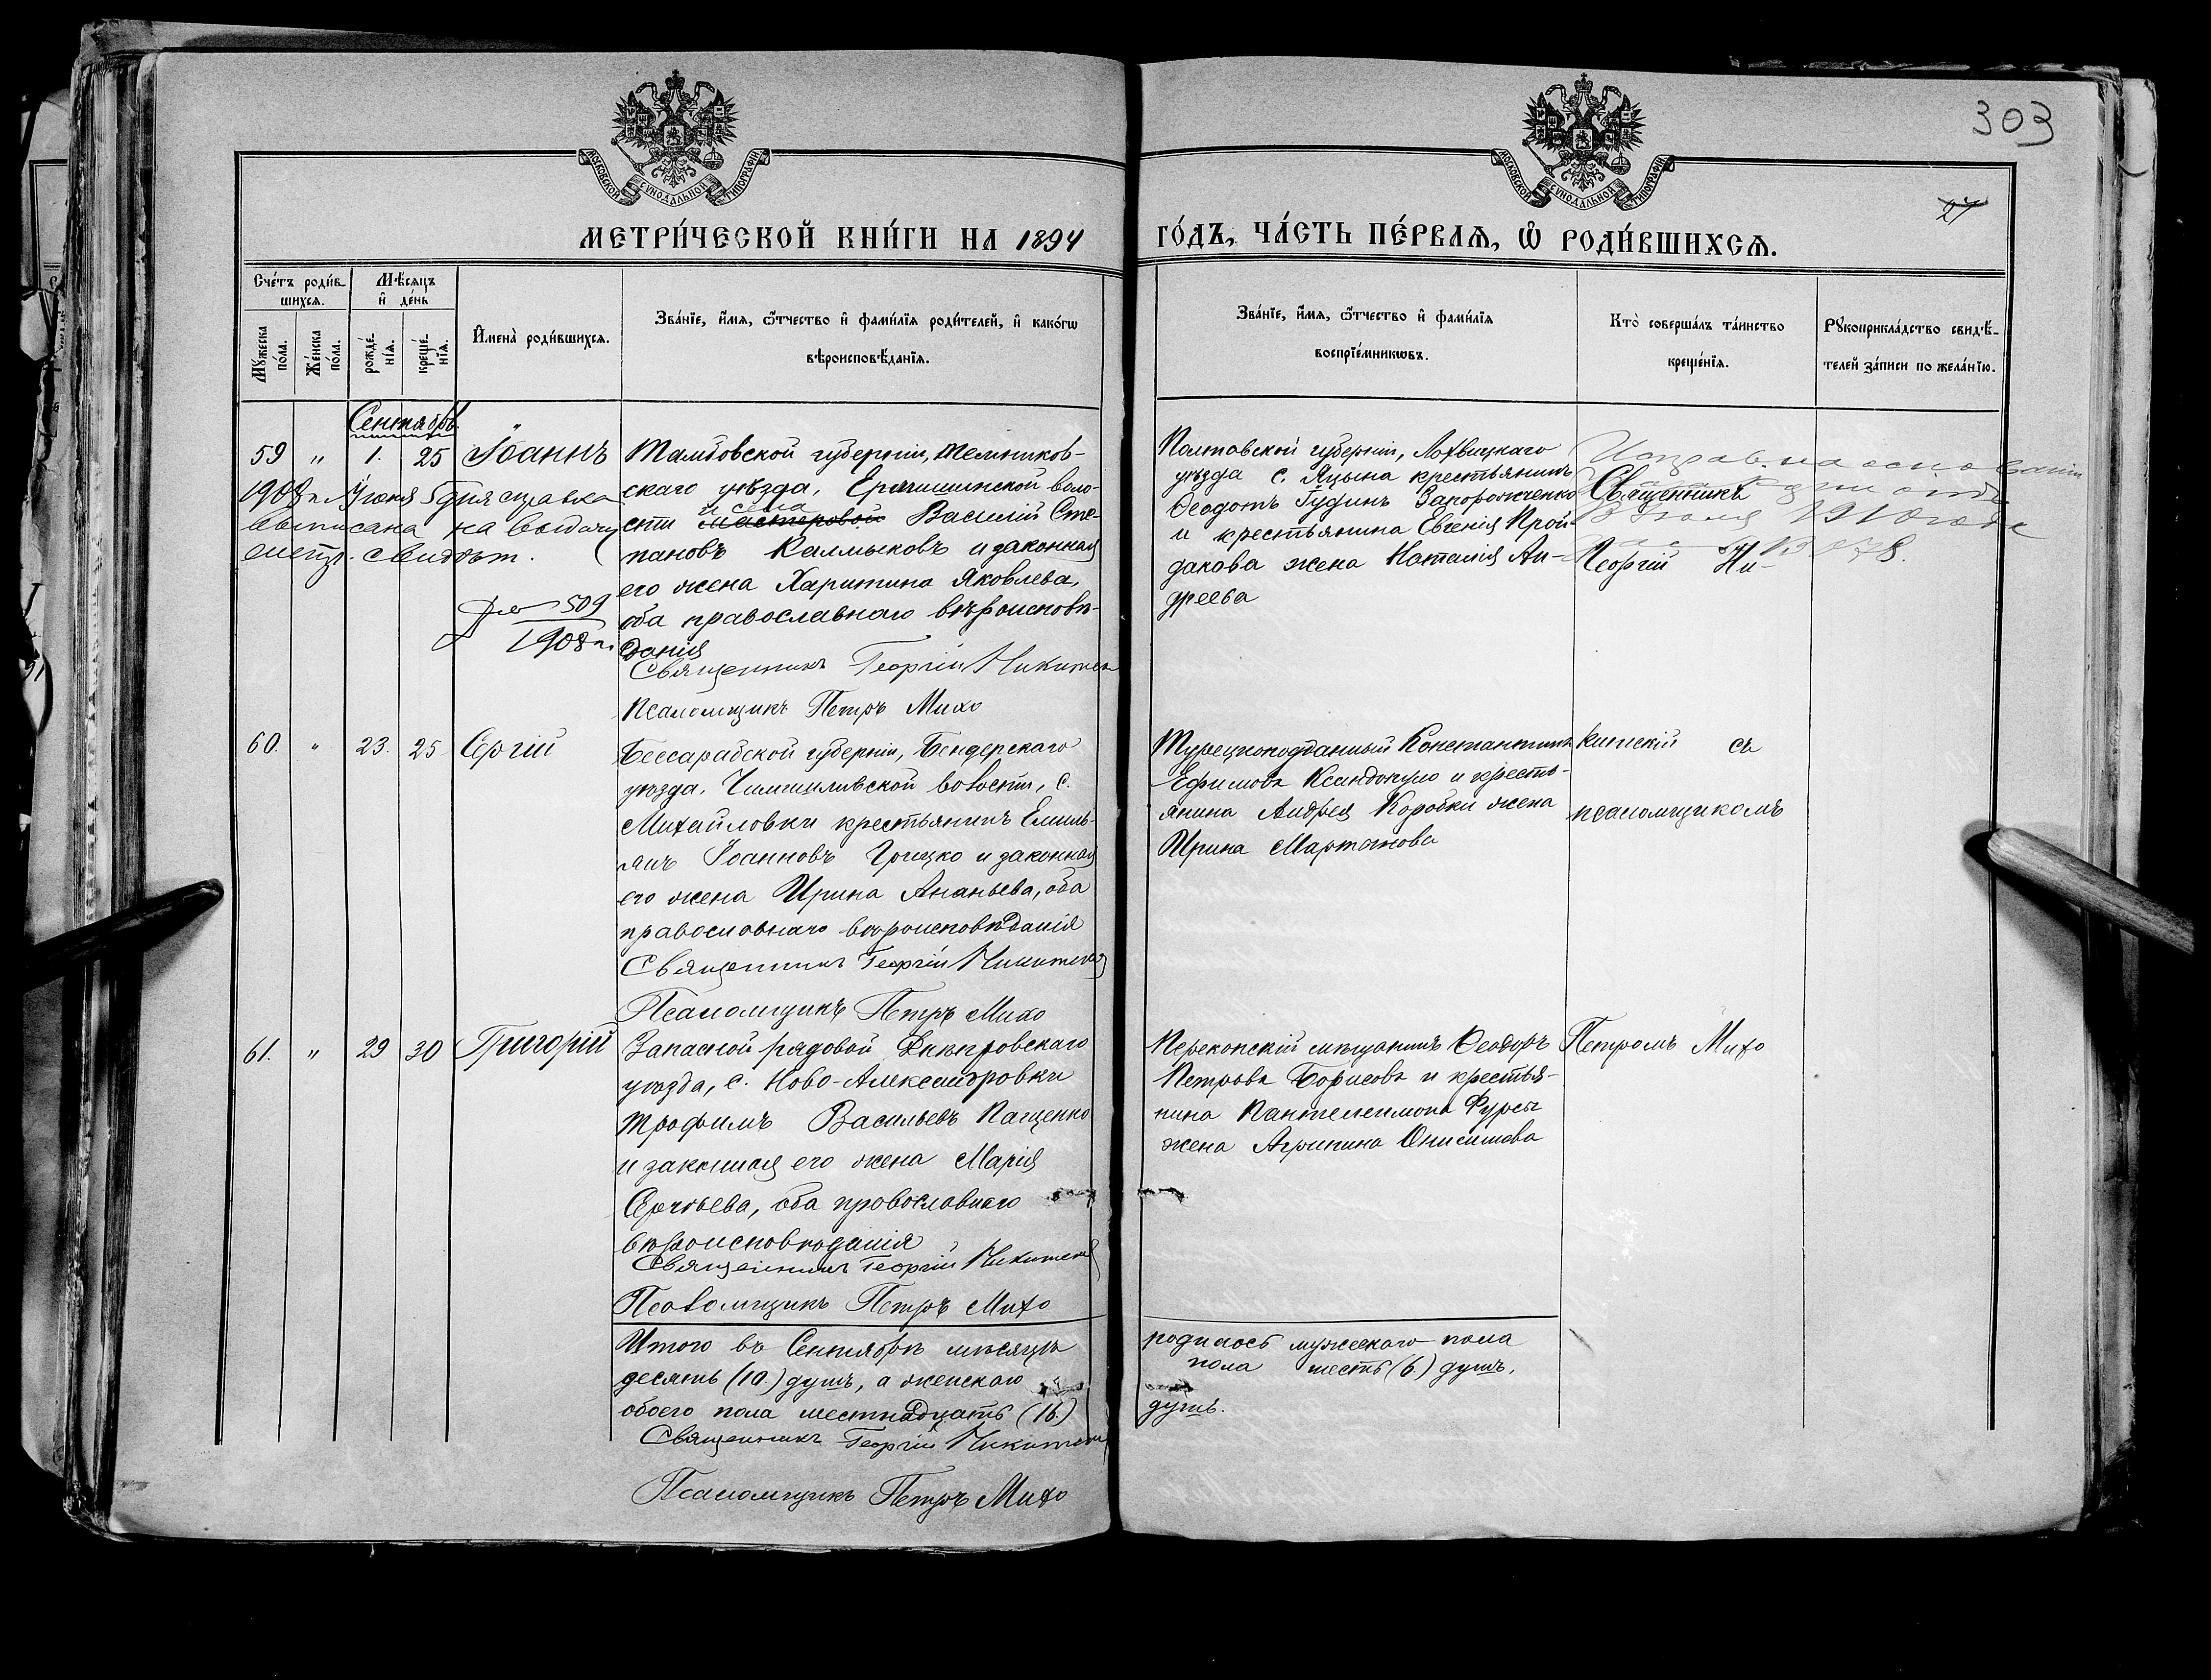 303
27
МОСКОВСКОЙ СѴНОДАЛЬНОЙ ТИПОГРАФІИ
МОСКОВСКОЙ СѴНОДАЛЬНОЙ ТИПОГРАФІИ
МЕТРИ́ЧЕСКОЙ КНИ́ГИ НА 1894
ГО́ДЪ, ЧА́СТЬ ПЕ́РВАЯ, Ѽ РОДИ́ВШИХСЯ.
Сче́тъ роди́в-
шихся.
Мѣ́сяцъ
и҆ де́нь
Мꙋ́жеска
по́ла.
Же́нска
по́ла.
рожде́-
нїя.
креще́-
нїя.
И҆мена̀ роди́вшихся.
Зва́нїе, и҆́мя, ѻ҆́тчество и҆ фами́лїя роди́телей, и҆ како́гѡ
вѣроисповѣ́данїя.
Зва́нїе, и҆́мя, ѻ҆́тчество и҆ фами́лїя
воспрїе́мникѡвъ.
Кто̀ соверша́лъ та́инство
креще́нїя.
Рꙋкоприкла́дство свидѣ́-
телей за́писи по жела́нїю.
Сентябрь
59 " 1. 25 Іоаннъ
1908 г. Іюня 5 дня справка
выписана на выдачу
метр. свидѣт.
509
1908 г.
Тамбовской губерніи, Темников-
скаго уѣзда, Еракшинской воло-
и села
сти мастеровой Василій Сте-
пановъ Калмыковъ и законная
его жена Харитина Яковлева,
оба православнаго вѣроисповѣ-
данія
Священникъ Георгій Никитскій
Псаломщикъ Петръ Михо
Полтавской губерніи, Лохвицкаго
уѣзда с. Яцына крестьянинъ
Ѳеодотъ Гудинъ Запорожченко
и крестьянина Евгенія Прой-
дакова жена Наталія Ан-
дреева
Священникъ
1910 года
Георгій Ни-
60. " 23. 25 Сергій
Бессарабской губерніи, Бендерскаго
уѣзда, Чимишлійской волости, с.
Михайловки крестьянинъ Емиль-
янъ Іоанновъ Грицко и законная
его жена Ирина Ананьева, оба
православнаго вѣроисповѣданія
Священникъ Георгій Никитскій
Псаломщикъ Петръ Михо
Турецкоподданный Константинъ
Ефимовъ Ксандопуло и кресть-
янина Андрея Коробки жена
Ирина Мартынова
китскій съ
псаломщикомъ
61. " 29 30 Григорій
Запасной рядовой Днѣпровскаго
уѣзда, с. Ново-Александровки
Трофимъ Васильевъ Пащенко
и законная его жена Марія
Сергѣева, оба православнаго
вѣроисповѣданія
Священникъ Георгій Никитскій
Псаломщикъ Петръ Михо
Перекопскій мѣщанинъ Ѳеодоръ
Петровъ Борисовъ и крестья-
нина Пантелеимона Фурсы
жена Агрипина Онисимова
Петромъ Михо
Итого въ Сентябрѣ мѣсяцѣ
родилось мужескаго пола
десять (10) душъ, а женскаго
пола шесть (6) душъ,
обоего пола шестнадцать (16)
душъ.
Священникъ Георгій Никитскій
Псаломщикъ Петръ Михо